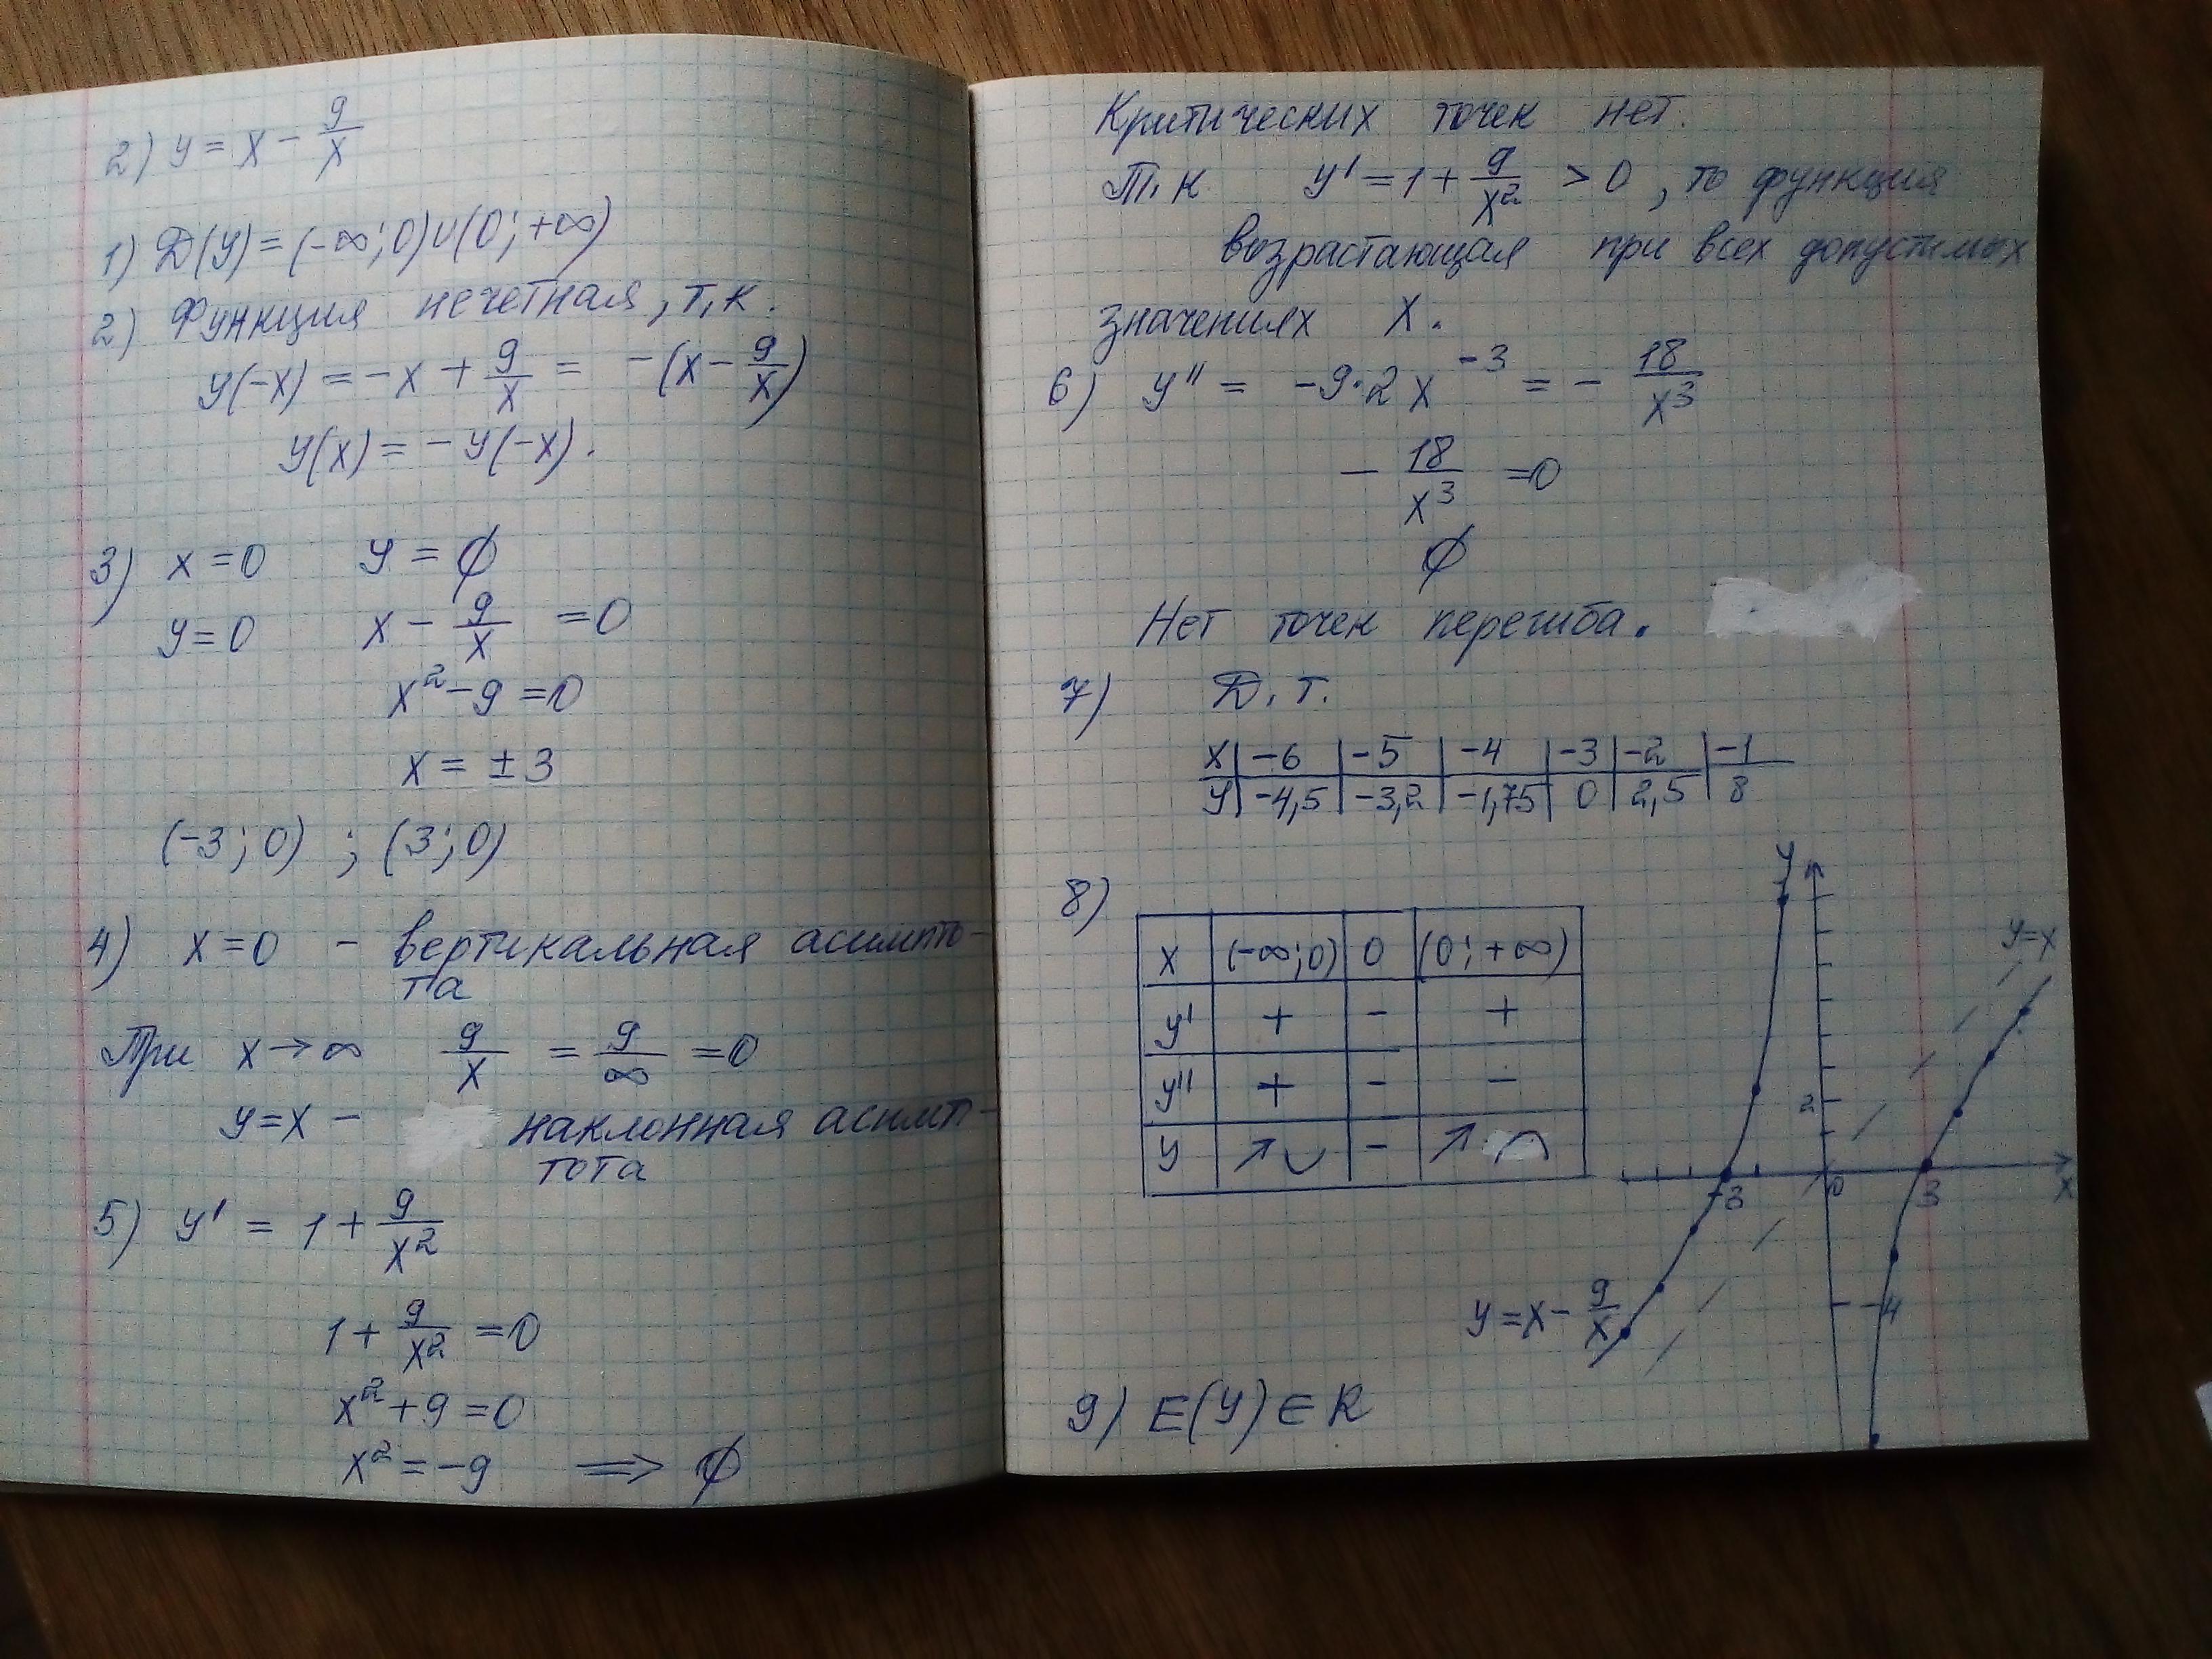 2) y = x - 9/x
1) D(y) = (-∞; 0) ∪ (0; +∞)
2) Функция нечетная, т.к.
y(-x) = -x + 9/x = -(x - 9/x)
y(x) = -y(-x).
3) x = 0 y = ∅
y = 0 x - 9/x = 0
x² - 9 = 0
x = ± 3
(-3; 0) ; (3; 0)
4) x = 0 - вертикальная асимпто-
та
При x → ∞ 9/x = 9/∞ = 0
y = x - наклонная асимп-
тота
5) y' = 1 + 9/x²
1 + 9/x² = 0
x² + 9 = 0
x² = -9 ⟹ ∅
Критических точек нет.
Т.к y' = 1 + 9/x² > 0, то функция
возрастающая при всех допустимых
значениях x.
6) y'' = -9·2x⁻³ = - 18/x³
- 18/x³ = 0
∅
Нет точек перегиба.
7) Д.т.
x | -6 | -5 | -4 | -3 | -2 | -1
y | -4,5 | -3,2 | -1,75 | 0 | 2,5 | 8
8)
x | (-∞; 0) | 0 | (0; +∞)
y' | + | - | +
y'' | + | - | -
y | ↗ ∪ | - | ↗ ∩
y
y = x
2
-3 0 3 x
-4
y = x - 9/x
9) E(y) ∈ R